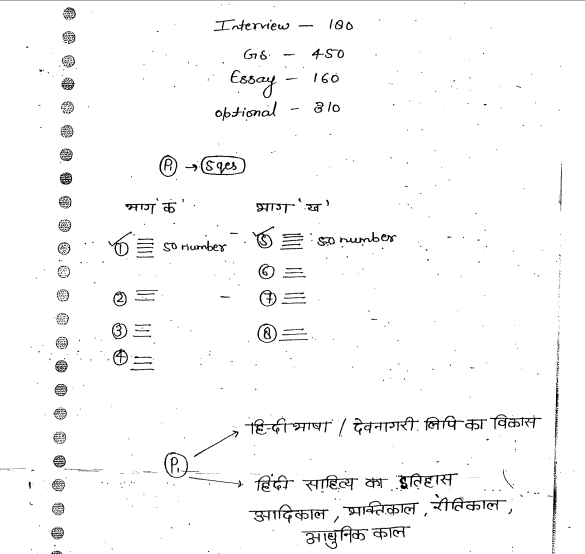 Interview - 180
GS - 450
Essay - 160
optional - 310
P₁ → 5 ques
भाग 'क' भाग 'ख'
① 50 number ⑤ 50 number
② ⑥
③ ⑦
④ ⑧
हिन्दी भाषा / देवनागरी लिपि का विकास
P₁
हिंदी साहित्य का इतिहास
आदिकाल, भक्तिकाल, रीतिकाल,
आधुनिक काल